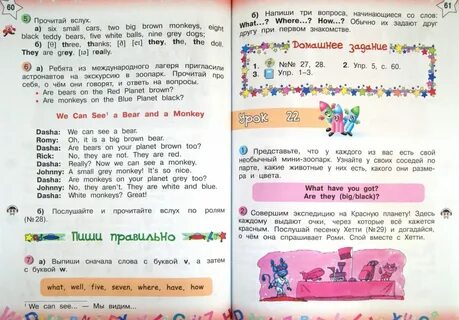 60
5 Прочитай вслух.
а) six small cars, two big brown monkeys, eight
black teddy bears, five white balls, nine grey dogs;
б) [θ] three, thanks; [ð] they, the, the doll.
They are grey. [ıə] really.
6 а) Ребята из международного лагеря пригласили
астронавтов на экскурсию в зоопарк. Прочитай про
себя, о чём они говорят, и ответь на вопросы.
• Are bears on the Red Planet brown?
• Are monkeys on the Blue Planet black?
We Can See¹ a Bear and a Monkey
Dasha: We can see a bear.
Romy: Oh, it is a big brown bear.
Dasha: Are bears on your planet brown too?
Rick: No, they are not. They are red.
Dasha: Really? Now we can see a monkey.
Johnny: A small grey monkey! It's so nice.
Dasha: Are monkeys on your planet grey too?
Johnny: No, they aren't. They are white and blue.
Dasha: White monkeys? Great!
б) Послушайте и прочитайте вслух по ролям
(№28).
Пиши правильно
7 а) Выпиши сначала слова с буквой v, а затем
с буквой w.
what, well, five, seven, where, have, how
¹ We can see... — Мы видим...
61
б) Напиши три вопроса, начинающиеся со слов:
What...? Where...? How...? Обычно их задают друг
другу при первом знакомстве.
Домашнее задание
1. №№ 27, 28.
2. Упр. 5, с. 60.
3. Упр. 1–3.
Урок 22
1 Представьте, что у каждого из вас есть свой
необычный мини-зоопарк. Узнайте у своих соседей по
парте, какие животные у них есть, какого они разме-
ра и цвета.
What have you got?
Are they (big/black)?
2 Совершим экспедицию на Красную планету! Здесь
каждому выдают очки, через которые всё кажется
красным. Послушай песенку Хетти (№29) и догадайся,
о чём она спрашивает Роми. Спой вместе с Хетти.